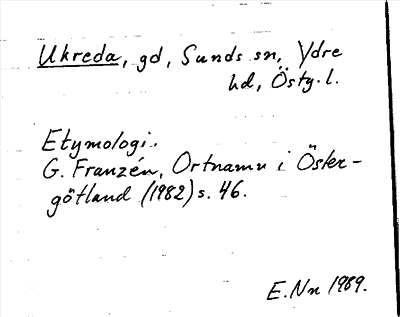 Ukreda, gd, Sunds sn, Ydre
hd, Östg.l.
Etymologi:
G. Franzén, Ortnamn i Öster-
götland (1982) s. 46.
E.Nn 1989.